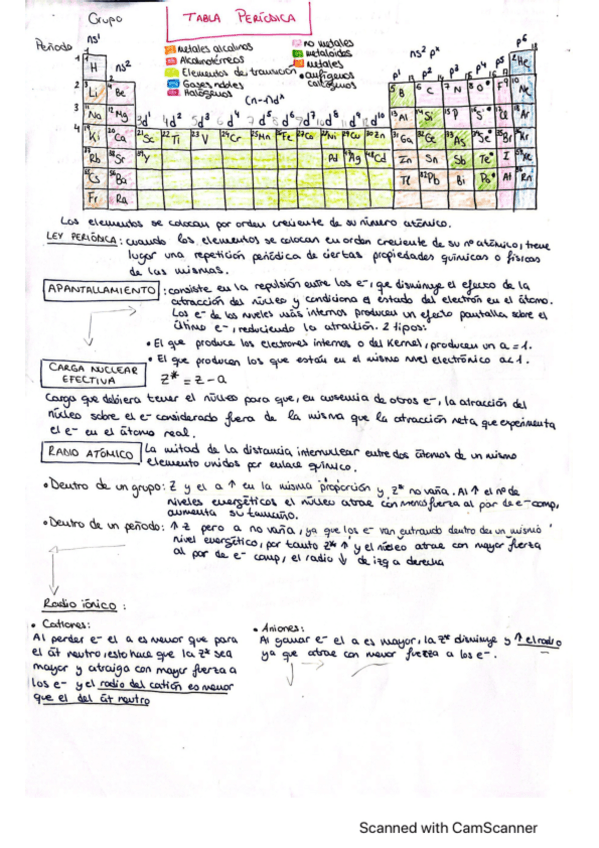 Grupo
TABLA PERIÓDICA
Periodo
ns¹
ns²
metales alcalinos
Alcalinotérreos
Elementos de transición
Gases nobles
Halógenos
no metales
metaloides
metales
anfígenos
(n-1)dˣ
ns² pˣ
p¹ p² p³ p⁴ p⁵ p⁶
H He
Li Be B C N O F Ne
Na Mg Al Si P S Cl Ar
Ca Sc Ti V Cr Mn Fe Co Ni Cu Zn Ga Ge As Se Br Kr
Rb Sr Y Ag Cd Sn Sb Te I Xe
Cs Ba Tl Pb Bi Po At Rn
Fr Ra
Los elementos se colocan por orden creciente de su número atómico.
LEY PERIÓDICA: cuando los elementos se colocan en orden creciente de su nº atómico, tiene
lugar una repetición periódica de ciertas propiedades químicas o físicas
de las mismas.
APANTALLAMIENTO: consiste en la repulsión entre los e⁻, que disminuye el efecto de la
atracción del núcleo y condiciona el estado del electrón en el átomo.
Los e⁻ de los niveles más internos producen un efecto pantalla sobre el
último e⁻, reduciendo la atracción. 2 tipos:
• El que produce los electrones internos o del Kernel, producen un a = 1.
• El que producen los que están en el mismo nivel electrónico a<1.
CARGA NUCLEAR
EFECTIVA
Z* = Z - a
Carga que debiera tener el núcleo para que, en ausencia de otros e⁻, la atracción del
núcleo sobre el e⁻ considerado fuera de la misma que la atracción neta que experimenta
el e⁻ en el átomo real.
RADIO ATÓMICO
La mitad de la distancia internuclear entre dos átomos de un mismo
elemento unidos por enlace químico.
• Dentro de un grupo: Z y el a ↑ en la misma proporción y Z* no varía. Al ↑ el nº de
niveles energéticos el núcleo atrae con menos fuerza al par de e⁻ comp,
aumenta su tamaño.
• Dentro de un período: ↑ Z pero a no varía, ya que los e⁻ van entrando dentro de un mismo
nivel energético, por tanto Z* ↑ y el núcleo atrae con mayor fuerza
al par de e⁻ comp, el radio ↓ de izq a derecha
Radio iónico:
• Cationes:
Al perder e⁻ el a es menor que para
el át neutro, esto hace que la Z* sea
mayor y atraiga con mayor fuerza a
los e⁻ y el radio del catión es menor
que el del át neutro
• Aniones:
Al ganar e⁻ el a es mayor, la Z* disminuye y ↑ el radio
ya que atrae con menor fuerza a los e⁻.
Scanned with CamScanner